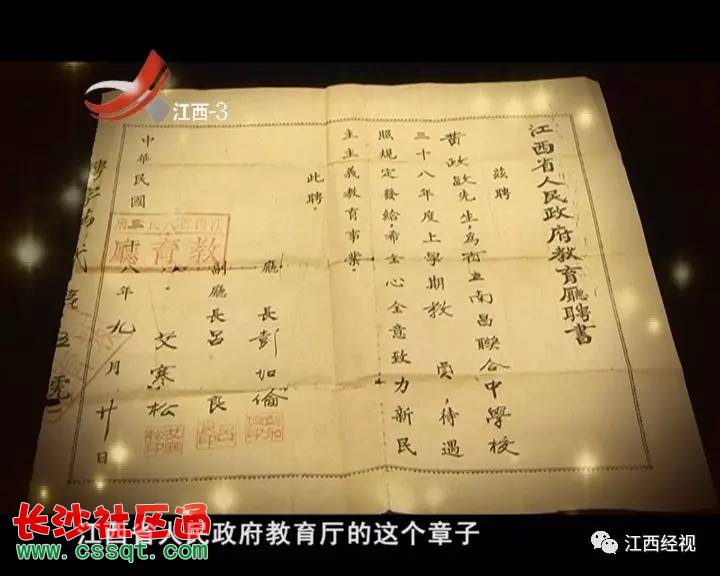 江西-3
江西省人民政府教育廳聘書
茲聘
黃政啟先生,為省立南昌聯合中學校
三十八年度上學期教員,待遇
照規定發給,希全心全意致力新民
主主義教育事業。
此聘。
廳長彭加倫
副廳長呂良
艾寒松
江西省人民政府
教育廳
中華民國三十八年九月廿日
江西省人民政府教育厅的这个章子
长沙社区通
www.cssqt.com
江西经视